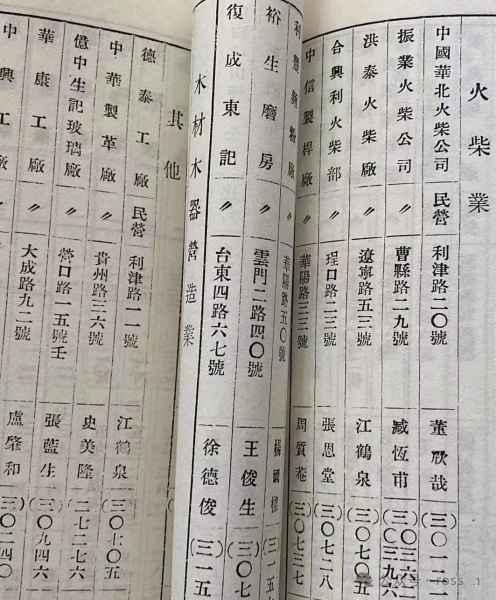 火柴業
中國華北火柴公司 民營 利津路二〇號 董敬哉 (三〇一二一
振業火柴公司 〃 曹縣路二九號 臧恆甫 (三〇三六二 (三〇三九六
洪泰火柴廠 〃 遼寧路五三號 江鶴泉 (三〇七〇五
合興利火柴部 〃 埕口路二三號 張思堂 (三〇七二八
中信製桿廠 〃 華陽路三三號 周質菴 (三〇七三七
華陽路五〇號 楊國樑 (三一五
裕生磨房 〃 雲門二路四〇號 王俊生 (三〇七
復成東記 〃 台東四路六七號 徐德俊 (三一五
木材木器營造業
其他
德泰工廠 民營 利津路一一號 江鶴泉 (三〇七〇五
中華製革廠 〃 貴州路三六號 史美隆 (二七二七六
億中生記玻璃廠 〃 營口路一五號壬 張藍生 (三〇九四六
華康工廠 〃 大成路九二號 盧肇和 (三〇二四〇
中興工廠 〃
ross